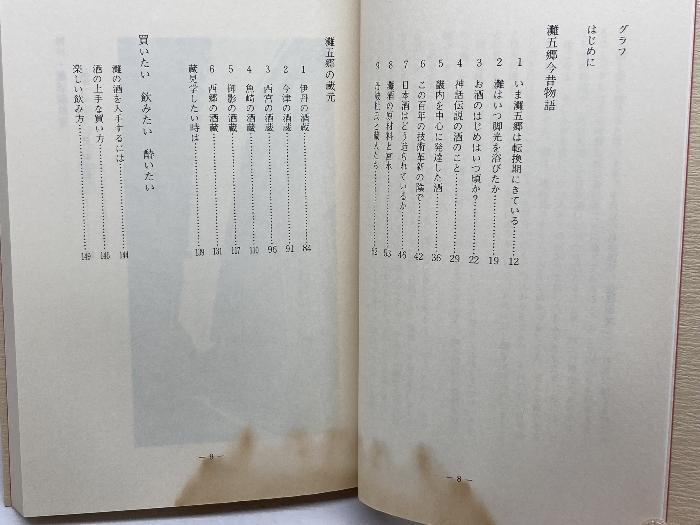 グラフ
はじめに
灘五郷今昔物語
1 いま灘五郷は転換期にきている……12
2 灘はいつ脚光を浴びたか……19
3 お酒のはじめはいつ頃か?……22
4 神話伝説の酒のこと……29
5 畿内を中心に発達した酒……36
6 この百年の技術革新の陰で……42
7 日本酒はどう造られているか……46
8 灘酒の原材料と宮水……53
9
— 8 —
灘五郷の蔵元
1 伊丹の酒蔵……84
2 今津の酒蔵……91
3 西宮の酒蔵……96
4 魚崎の酒蔵……110
5 御影の酒蔵……117
6 西郷の酒蔵……131
蔵見学したい時は……139
買いたい 飲みたい 酔いたい
灘の酒を入手するには……144
酒の上手な買い方……146
楽しい飲み方……149
— 9 —